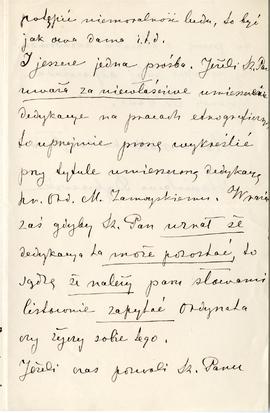 potępić niemoralność ludu, to być
jak owa dama i.t.d.
I jeszcze jedna prośba. Jeżeli Sz. Pan
uważa za niewłaściwe umieszczenie
dedykacye na pracach etnograficzn.
to uprzejmie proszę wykreślić
przy tytule umieszczoną dedykacyę
hr. Ord. M. Zamoyskiemu. W razie
zaś gdyby Sz. Pan uznał że
dedykacya ta może pozostać, to
sądzę że należy paru słowami
listownie zapytać Ordynata
czy życzy sobie tego.
Jeżeli czas pozwoli Sz. Panu